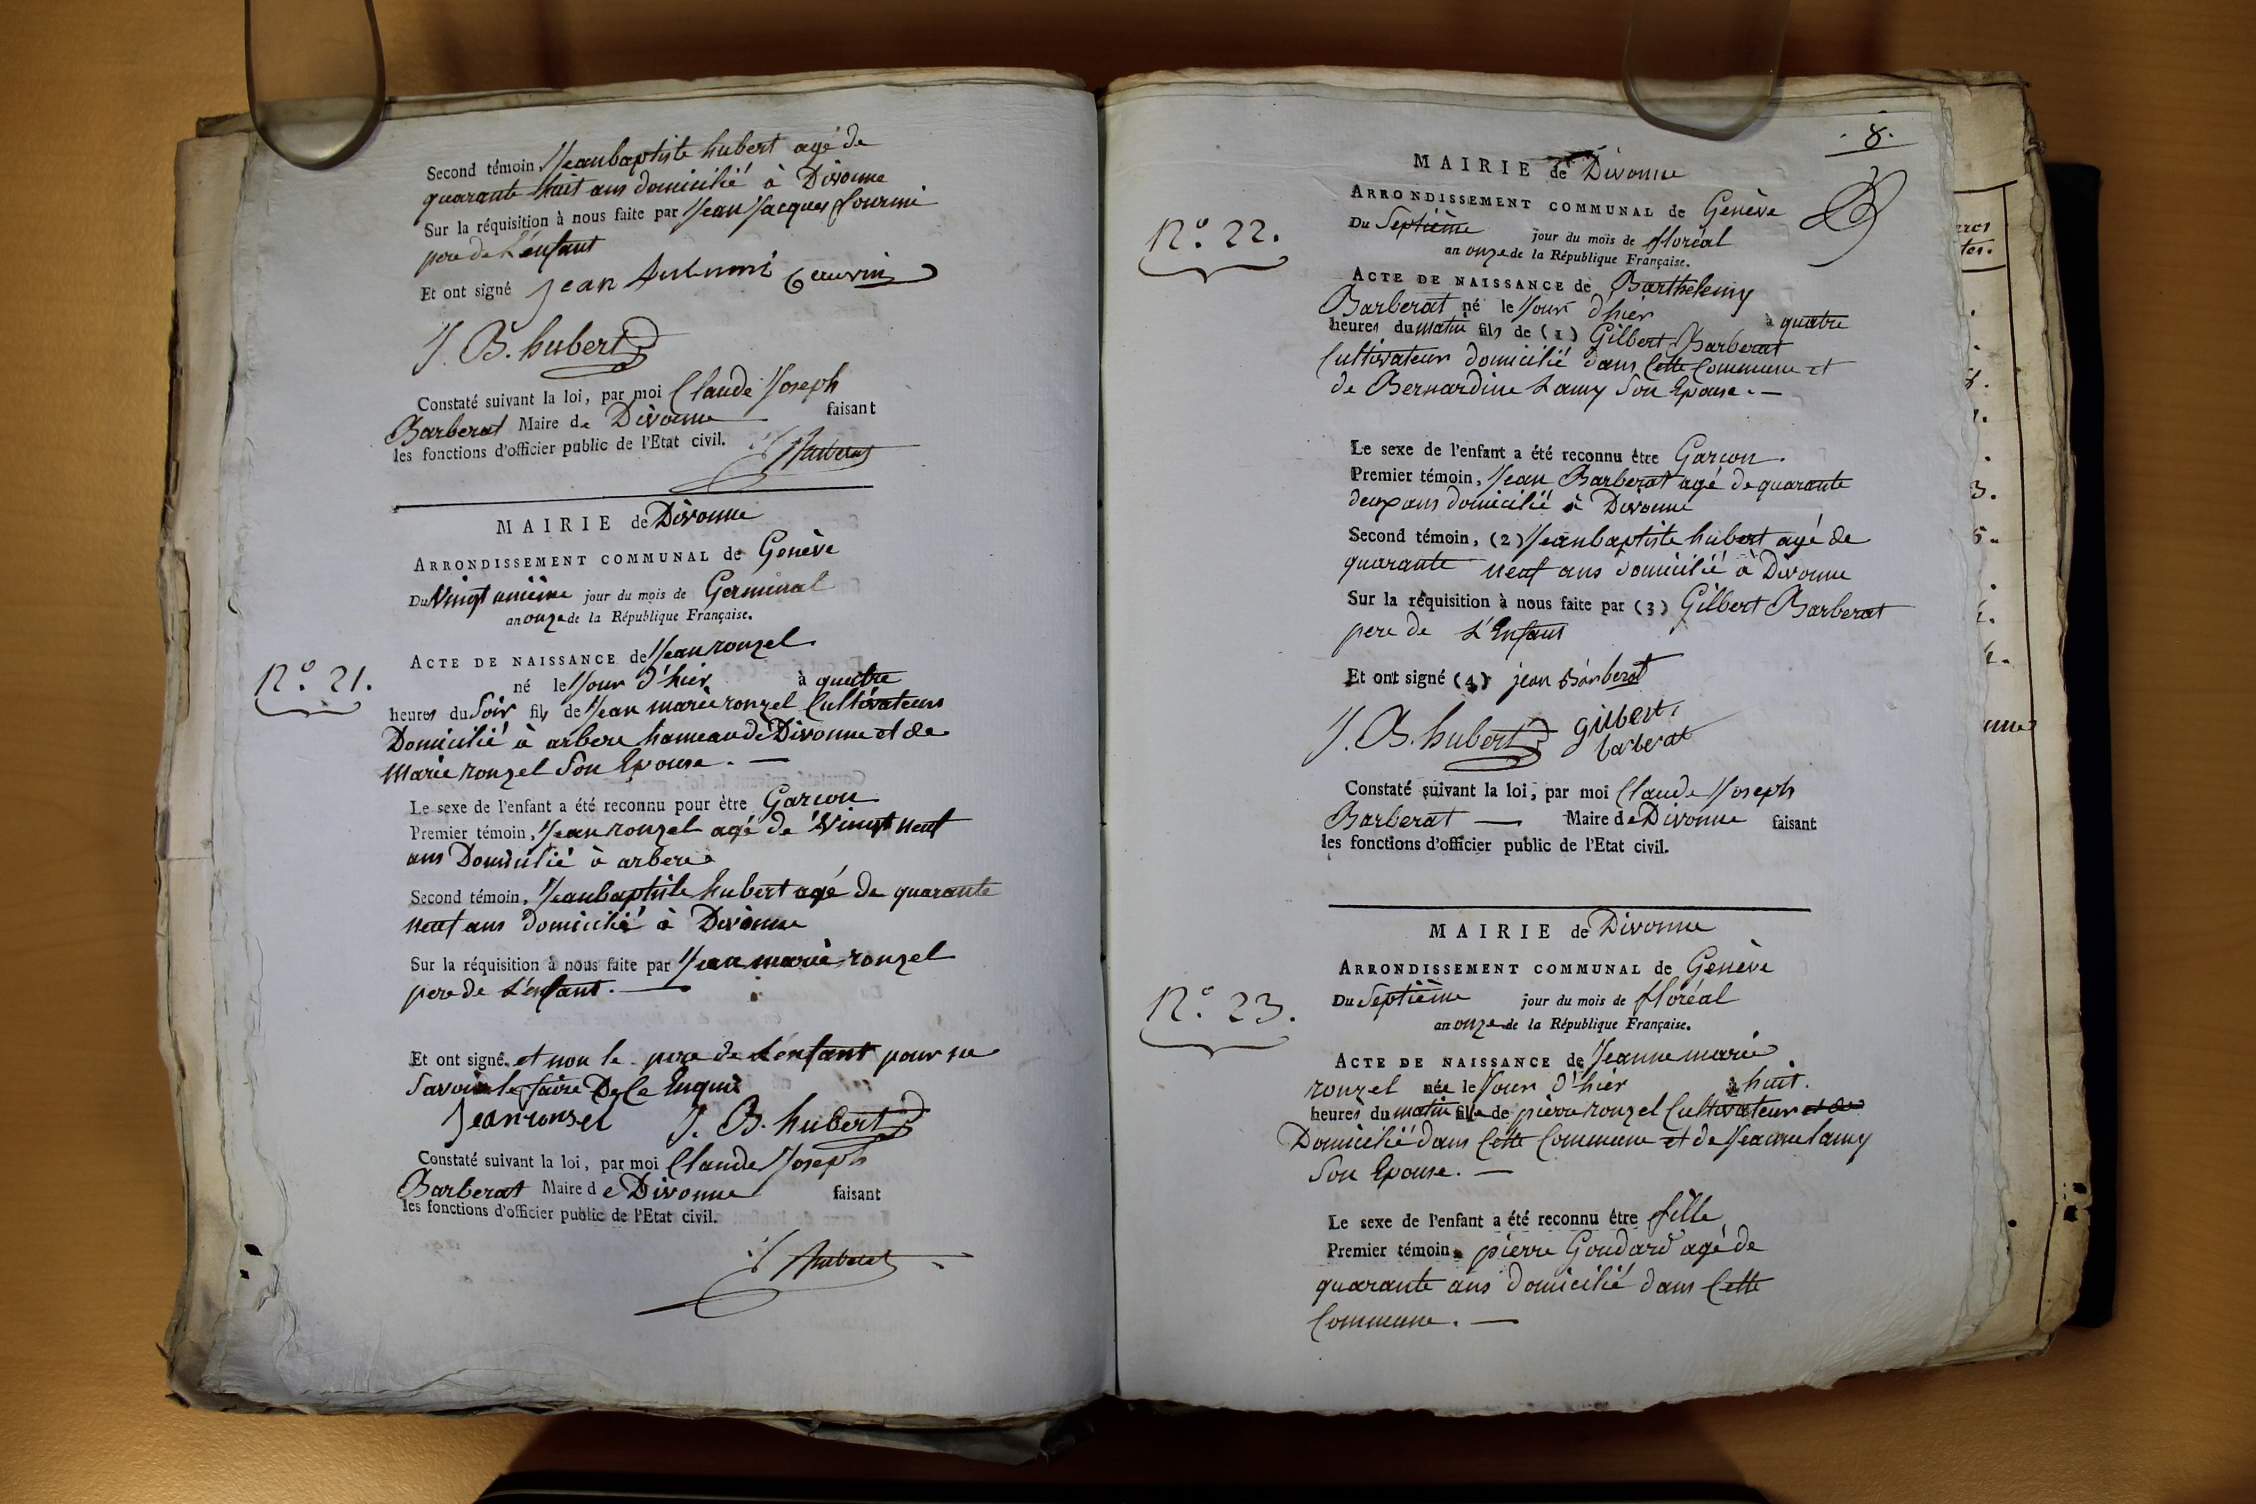 Second témoin, Jeanbaptiste hubert agé de
quarante huit ans domicilié à Divonne
Sur la réquisition à nous faite par Jean Jacques fournie
pere de L'énfant
Et ont signé Jean
J. B. hubert
Constaté suivant la loi, par moi Claude Joseph
Barberat Maire de Divonne faisant
les fonctions d'officier public de l'Etat civil.
MAIRIE de Divonne
ARRONDISSEMENT COMMUNAL de Genève
Du Vingt unième jour du mois de Germinal
an onze de la République Française.
N.° 21.
ACTE DE NAISSANCE de Jean ronzel
né le Jour d'hier à quatre
heures du Soir fils de Jean marie ronzel Cultivateur
Domicilié à arbere hameau de Divonne et de
Marie ronzel Son Epouse. —
Le sexe de l'enfant a été reconnu pour être Garcon
Premier témoin, Jean ronzel agé de Vingt neuf
ans Domicilié à arbere
Second témoin, Jeanbaptiste hubert agé de quarante
neuf ans domicilié à Divonne
Sur la réquisition à nous faite par Jean marie ronzel
pere de L'enfant. —
Et ont signé. et non le pere de L'énfant pour ne
Savoir le faire De Ce Enquis
Jean ronzel J. B. hubert
Constaté suivant la loi, par moi Claude Joseph
Barberat Maire de Divonne faisant
les fonctions d'officier public de l'Etat civil.
. 8 .
MAIRIE de Divonne
ARRONDISSEMENT COMMUNAL de Genève
N.° 22.
Du Septième jour du mois de floréal
an onze de la République Française.
ACTE DE NAISSANCE de Barthelemy
Barberat né le Jour d'hier à quatre
heures du matin fils de (1) Gilbert Barberat
Cultivateur domicilié dans Cette Commune et
de Bernardine Lamy Son Epouse. —
Le sexe de l'enfant a été reconnu être Garcon.
Premier témoin, Jean Barberat agé de quarante
deux ans domicilié à Divonne
Second témoin, (2) Jeanbaptiste hubert agé de
quarante neuf ans domicilié à Divonne
Sur la réquisition à nous faite par (3) Gilbert Barberat
pere de L'Enfant
Et ont signé (4) jean Barberat
J. B. hubert gilbert
barberat
Constaté suivant la loi, par moi Claude Joseph
Barberat — Maire de Divonne faisant
les fonctions d'officier public de l'Etat civil.
MAIRIE de Divonne
ARRONDISSEMENT COMMUNAL de Genève
N.° 23.
Du Septième jour du mois de floréal
an onze de la République Française.
ACTE DE NAISSANCE de Jeanne marie
ronzel née le Jour d'hier à huit.
heures du matin fille de pierre ronzel Cultivateur et de
Domicilié dans Cette Commune et de Jeanne lamy
Son Epouse. —
Le sexe de l'enfant a été reconnu être fille
Premier témoin, pierre Goudard agé de
quarante ans domicilié dans Cette
Commune. —